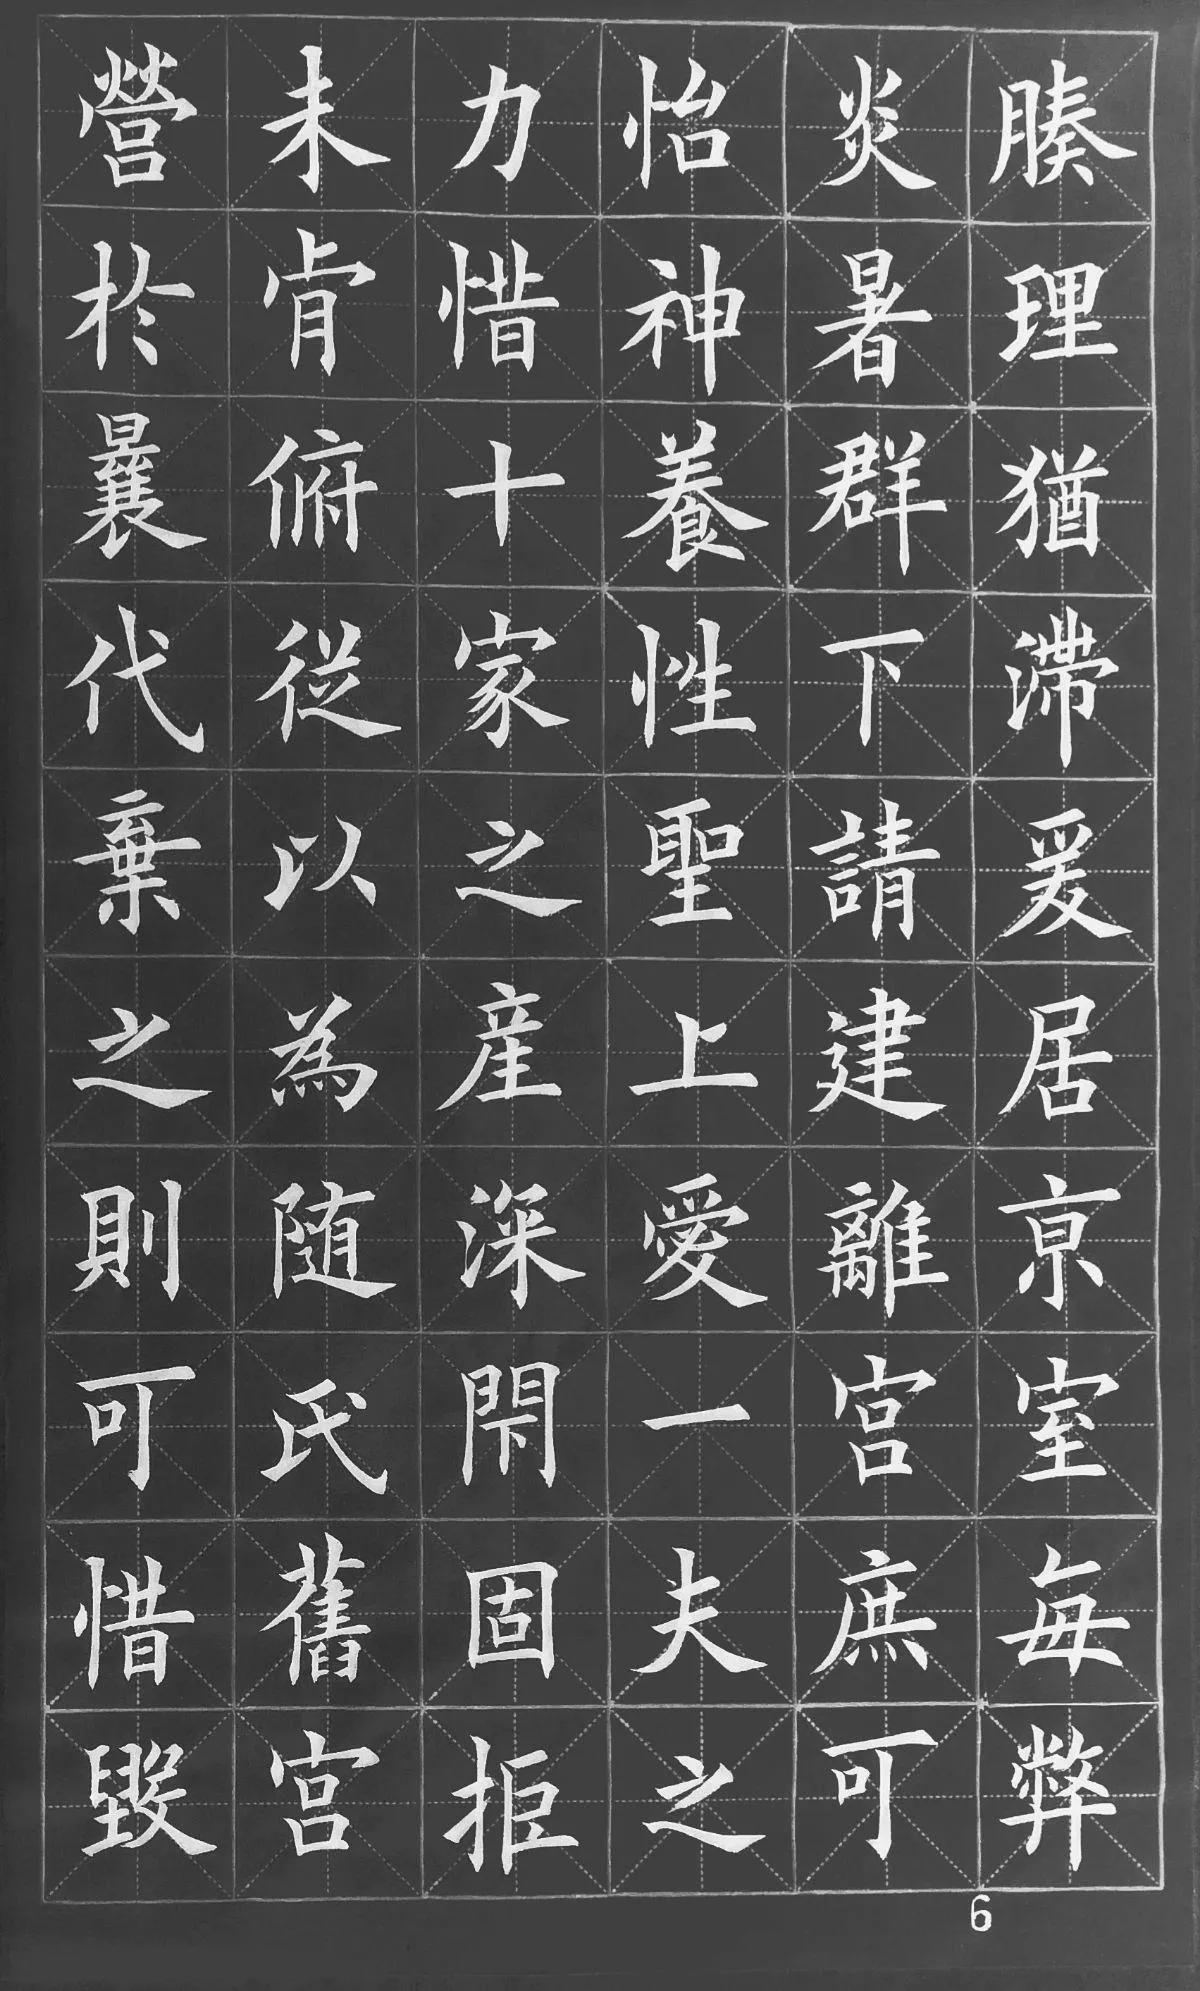 腠理猶滯爰居亰室每弊
炎暑群下請建離宮庶可
怡神養性聖上愛一夫之
力惜十家之産深閇固拒
未肯俯從以為随氏舊宮
營於曩代棄之則可惜毀
6